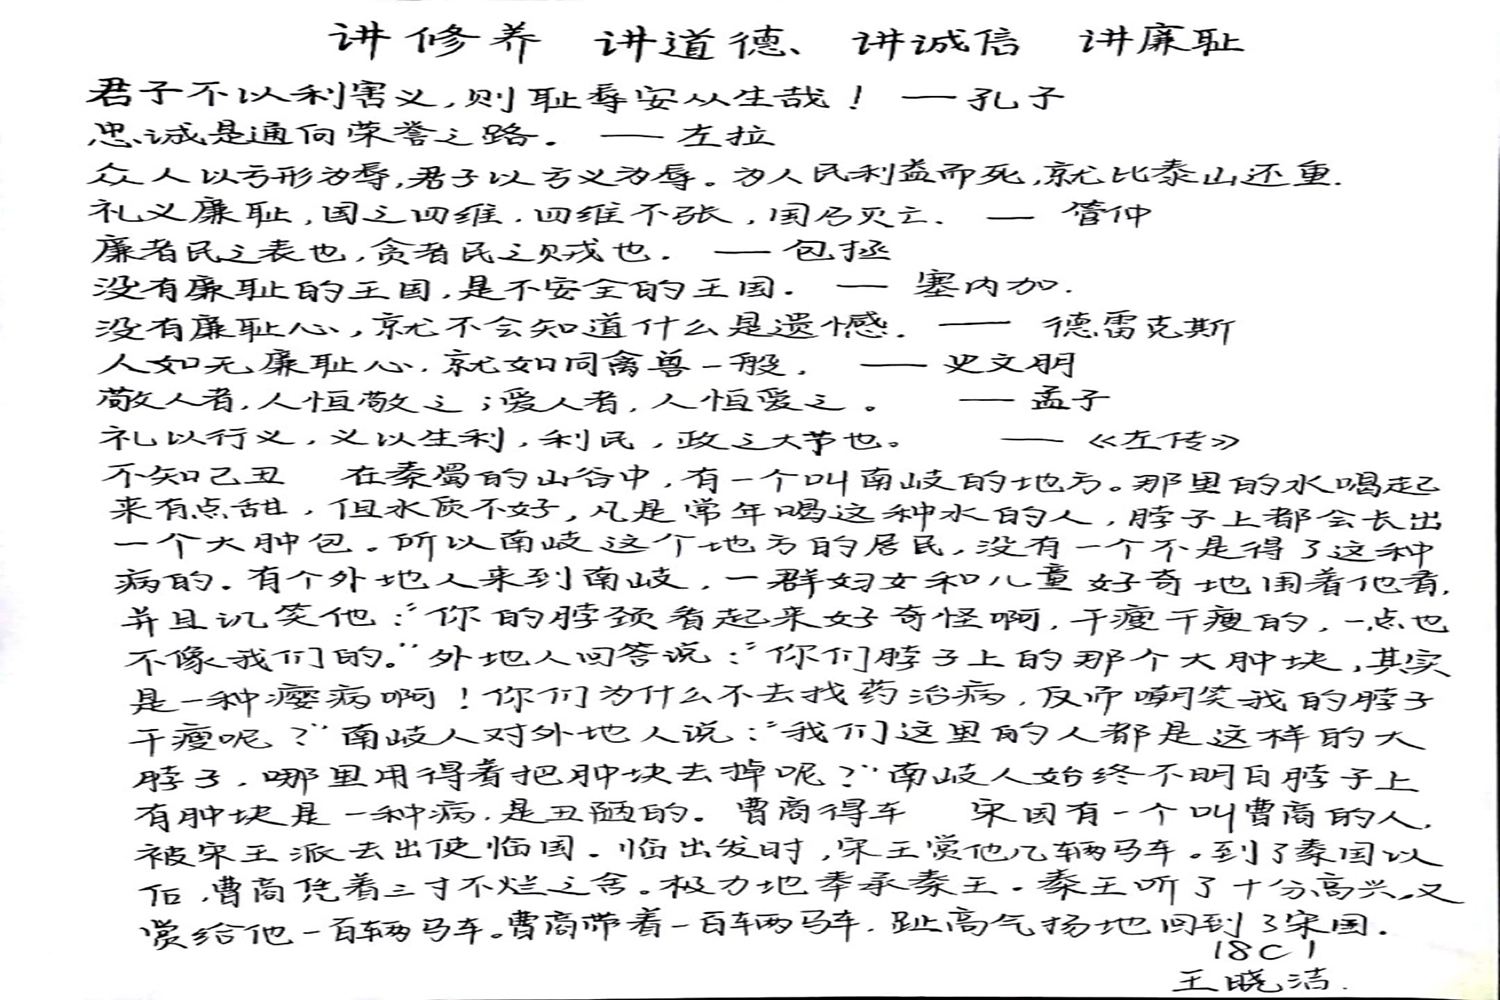 讲修养 讲道德、讲诚信 讲廉耻
君子不以利害义,则耻辱安从生哉! 一孔子
忠诚是通向荣誉之路. 一左拉
众人以亏形为辱,君子以亏义为辱。为人民利益而死,就比泰山还重.
礼义廉耻,国之四维.四维不张,国乃灭亡. 一 管仲
廉者民之表也,贪者民之贼也. 一包拯
没有廉耻的王国,是不安全的王国. 一 塞内加.
没有廉耻心,就不会知道什么是遗憾. 一 德雷克斯
人如无廉耻心.就如同禽兽一般. 一史文朋
敬人者,人恒敬之;爱人者,人恒爱之。 一孟子
礼以行义,义以生利,利民,政之大节也。 一《左传》
不知己丑 在秦蜀的山谷中,有一个叫南岐的地方。那里的水喝起
来有点甜,但水质不好,凡是常年喝这种水的人,脖子上都会长出
一个大肿包。所以南岐这个地方的居民,没有一个不是得了这种
病的.有个外地人来到南岐,一群妇女和儿童好奇地围着他看,
并且讥笑他:“你的脖颈看起来好奇怪啊,干瘦干瘦的,一点也
不像我们的。”外地人回答说:“你们脖子上的那个大肿块,其实
是一种瘿病啊!你们为什么不去找药治病,反而嘲笑我的脖子
干瘦呢?”南岐人对外地人说:“我们这里的人都是这样的大
脖子,哪里用得着把肿块去掉呢?”南岐人始终不明白脖子上
有肿块是一种病.是丑陋的. 曹商得车 宋国有一个叫曹商的人.
被宋王派去出使临国.临出发时,宋王赏他几辆马车。到了秦国以
后,曹商凭着三寸不烂之舍。极力地奉承秦王.秦王听了十分高兴,又
赏给他一百辆马车。曹商带着一百辆马车.趾高气扬地回到了宋国.
18C1
王晓洁.